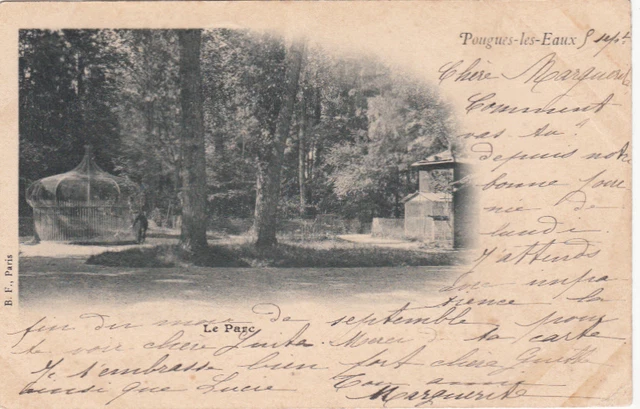 Pougues-les-Eaux 5 sept
Chère Marguerite
Comment
vas tu
depuis notre
bonne jour
née de
lundi.
J'attends
avec impa
tience la
fin du mois de septembre pour
Le Parc
te voir chère Merci de ta carte
Je t'embrasse bien fort chère
ainsi que Lucie Ton amie
Marguerite
B. F., Paris